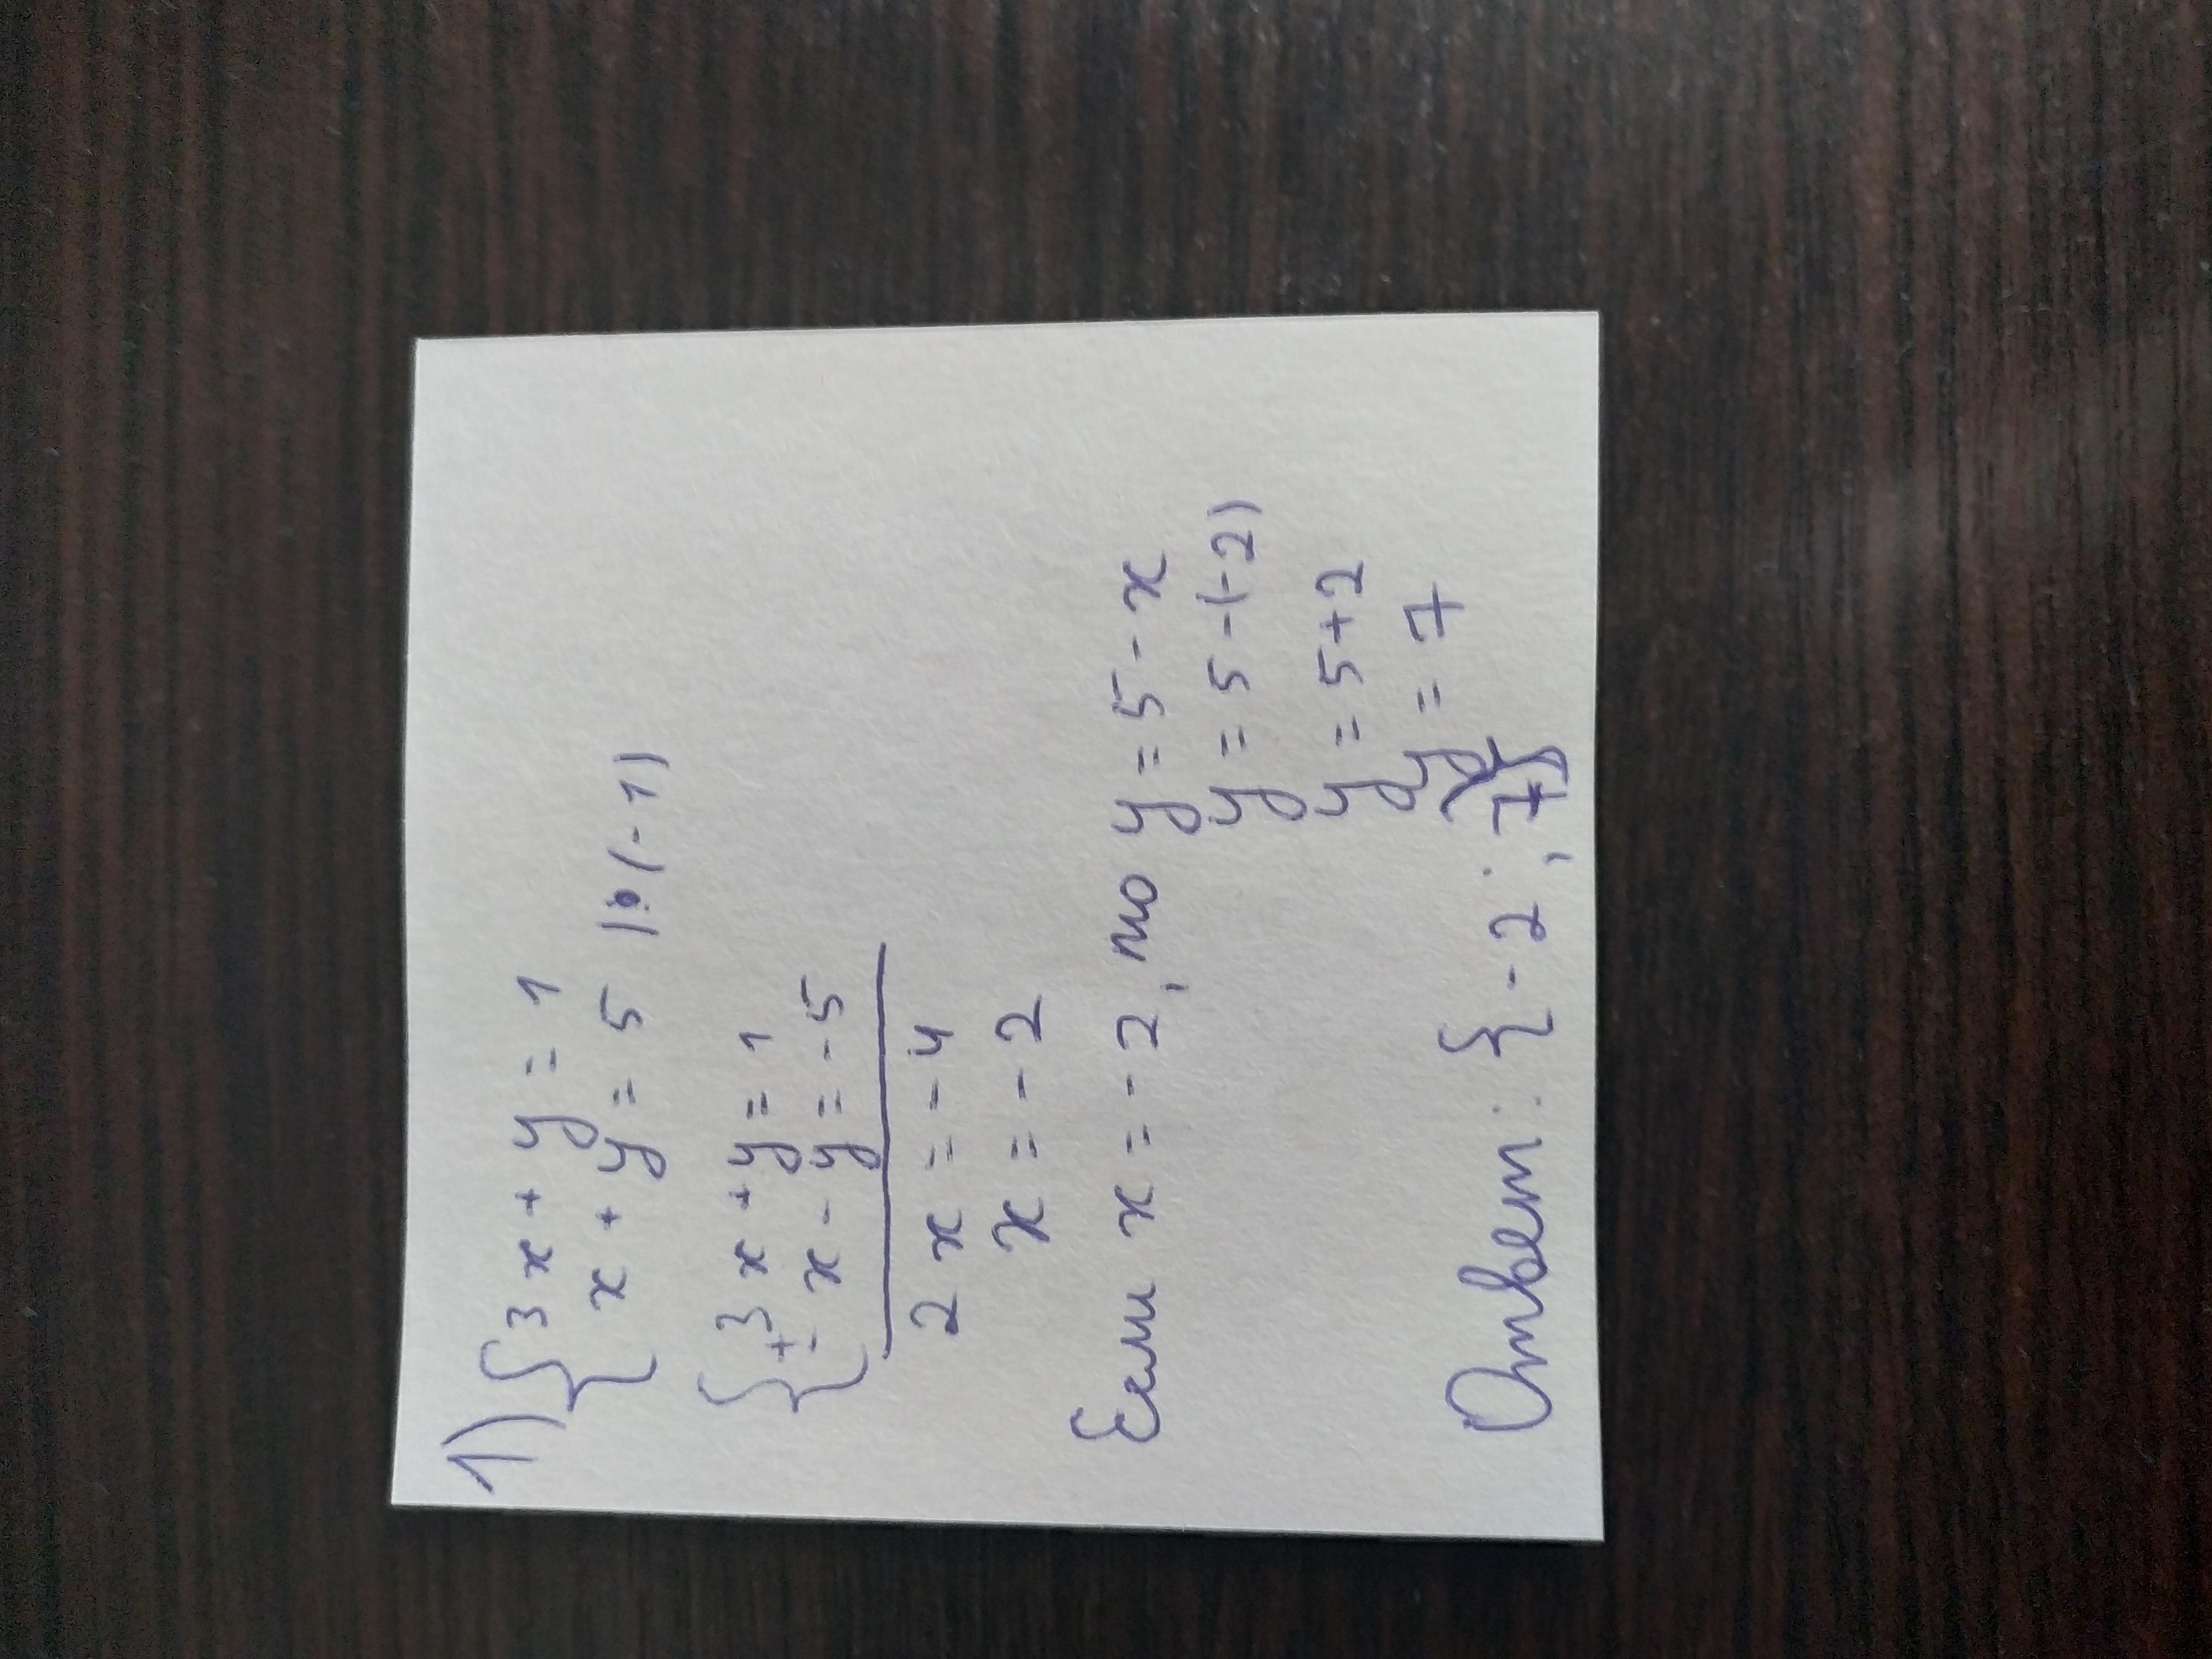 1) { 3x + y = 1
x + y = 5 |·(-1)
{ + 3x + y = 1
-x - y = -5
2x = -4
x = -2
Если x = -2, то y = 5 - x
y = 5 - (-2)
y = 5 + 2
y = 7
Ответ: {-2; 7}